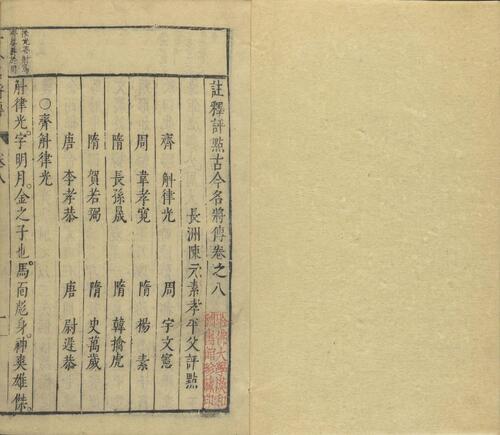 註釋評點古今名將傳卷之八
長洲陳元素孝平父評點
齊 斛律光 周 宇文憲
周 韋孝寬 隋 楊 素
隋 長孫晟 隋 韓擒虎
隋 賀若弼 隋 史萬歲
唐 李孝恭 唐 尉遲恭
○齊斛律光
斛律光。字明月。金之子也。馬面彪身。神爽雄傑。